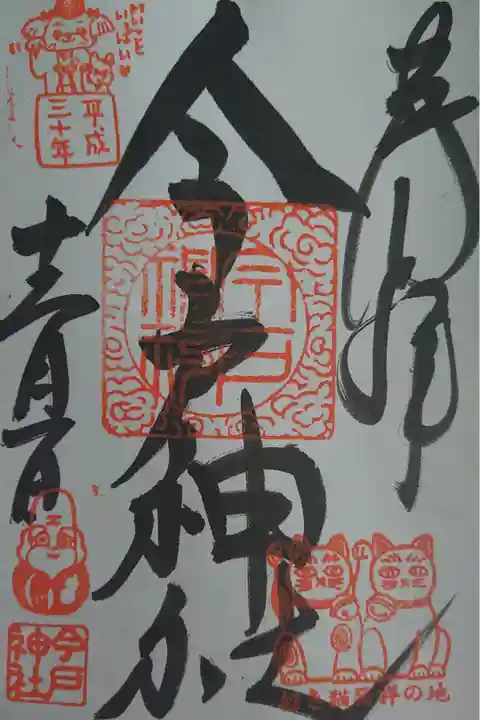 奉拝
今戸神社
平成
三十年
十二月一日
今戸
神社
招き猫発祥の地